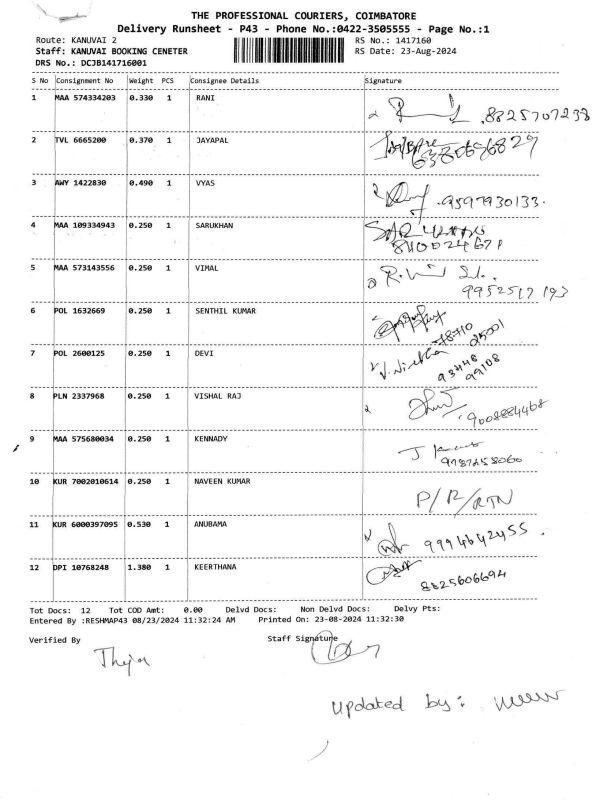 THE PROFESSIONAL COURIERS, COIMBATORE
Delivery Runsheet - P43 - Phone No.:0422-3505555 - Page No.:1
Route: KANUVAI 2 RS No.: 1417160
Staff: KANUVAI BOOKING CENETER RS Date: 23-Aug-2024
DRS No.: DCJB141716001
S No Consignment No Weight PCS Consignee Details Signature
1 MAA 574334203 0.330 1 RANI 8825707238
2 TVL 6665200 0.370 1 JAYAPAL
6380696829
3 AWY 1422830 0.490 1 VYAS 9597930133.
4 MAA 109334943 0.250 1 SARUKHAN
8110024671
5 MAA 573143556 0.250 1 VIMAL
9952517193
6 POL 1632669 0.250 1 SENTHIL KUMAR
78710
25001
7 POL 2600125 0.250 1 DEVI
93448
99108
8 PLN 2337968 0.250 1 VISHAL RAJ
9008884468
9 MAA 575680034 0.250 1 KENNADY
9787258060
10 KUR 7002010614 0.250 1 NAVEEN KUMAR
P/R/RTN
11 KUR 6000397095 0.530 1 ANUBAMA
9994642455.
12 DPI 10768248 1.380 1 KEERTHANA
8825606694
Tot Docs: 12 Tot COD Amt: 0.00 Delvd Docs: Non Delvd Docs: Delvy Pts:
Entered By :RESHMAP43 08/23/2024 11:32:24 AM Printed On: 23-08-2024 11:32:30
Verified By Staff Signature
Updated by: